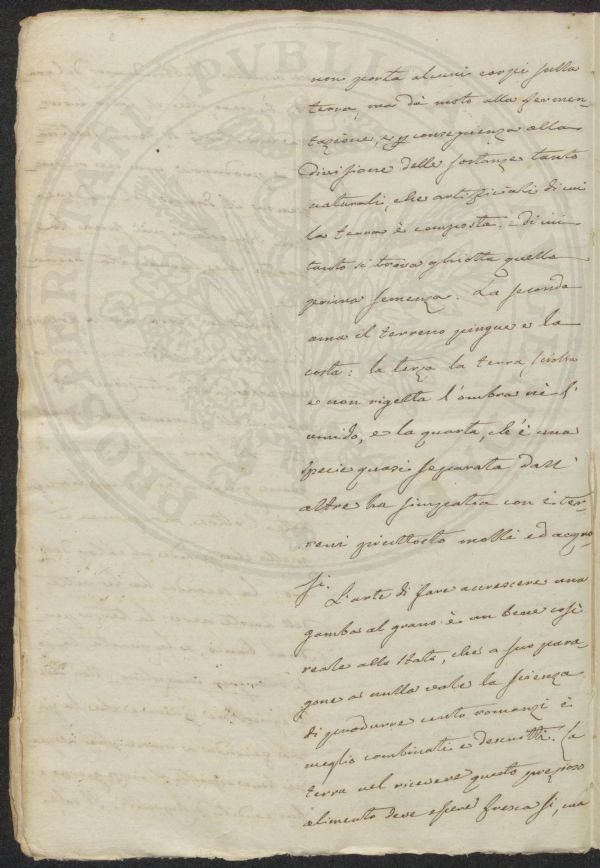 PROSPERITATI PVBLICAE
non porta alcuni corpi sulla
terra, ma dà moto alla fermen-
tazione, e p conseguenza alla
divisione delle sostanze tanto
naturali, che artificiali di cui
la terra è composta, e di cui
tanto si trova ghiotta quella
prima semenza. La seconda
ama il terreno pingue e la
costa: la terza la terra sciolta
e non rigetta l'ombra nè l'
umido, e la quarta, ch'è una
specie quasi separata dall'
altre ha simpatia con i ter-
reni piuttosto molli ed acquo
si.
L'arte di fare accrescere una
gamba al grano è un bene così
reale allo Stato, che a suo para
gone a nulla vale la scienza
di produrre cento romanzi i
meglio combinati e descritti. La
terra nel ricevere questo prezioso
alimento deve essere fresca si, ma